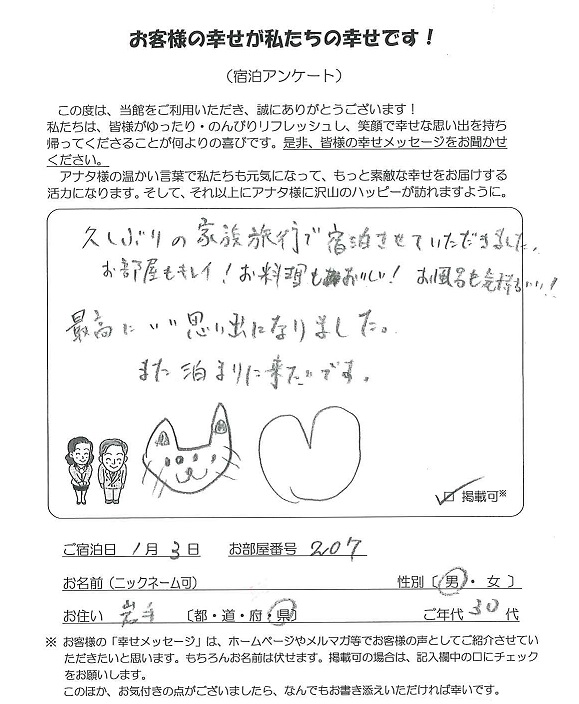 お客様の幸せが私たちの幸せです！
（宿泊アンケート）
この度は、当館をご利用いただき、誠にありがとうございます！
私たちは、皆様がゆったり・のんびりリフレッシュし、笑顔で幸せな思い出を持ち
帰ってくださることが何よりの喜びです。是非、皆様の幸せメッセージをお聞かせ
ください。
アナタ様の温かい言葉で私たちも元気になって、もっと素敵な幸せをお届けする
活力になります。そして、それ以上にアナタ様に沢山のハッピーが訪れますように。
久しぶりの家族旅行で宿泊させていただきました。
お部屋もキレイ！お料理もおいしい！お風呂も気持ちいい！
最高にいい思い出になりました。
また泊まりに来たいです。
掲載可※
ご宿泊日 1月3日 お部屋番号 207
お名前（ニックネーム可） 性別〔男・女〕
お住い 岩手〔都・道・府・県〕 ご年代 30代
※ お客様の「幸せメッセージ」は、ホームページやメルマガ等でお客様の声としてご紹介させてい
ただきたいと思います。もちろんお名前は伏せます。掲載可の場合は、記入欄中の口にチェック
をお願いします。
このほか、お気付きの点がございましたら、なんでもお書き添えいただければ幸いです。